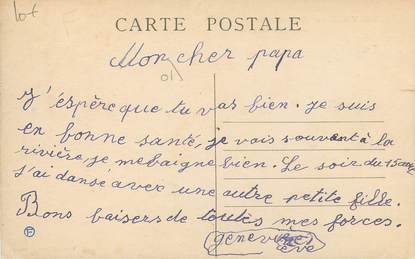 lot
CARTE POSTALE
Mon cher papa
J'éspère que tu vas bien. je suis
en bonne santé, je vais souvant à la
rivière, je me baigne bien. Le soir du 15 aug
j'ai dansé avec une autre petite fille.
Bons baisers de toutes mes forces.
geneviève